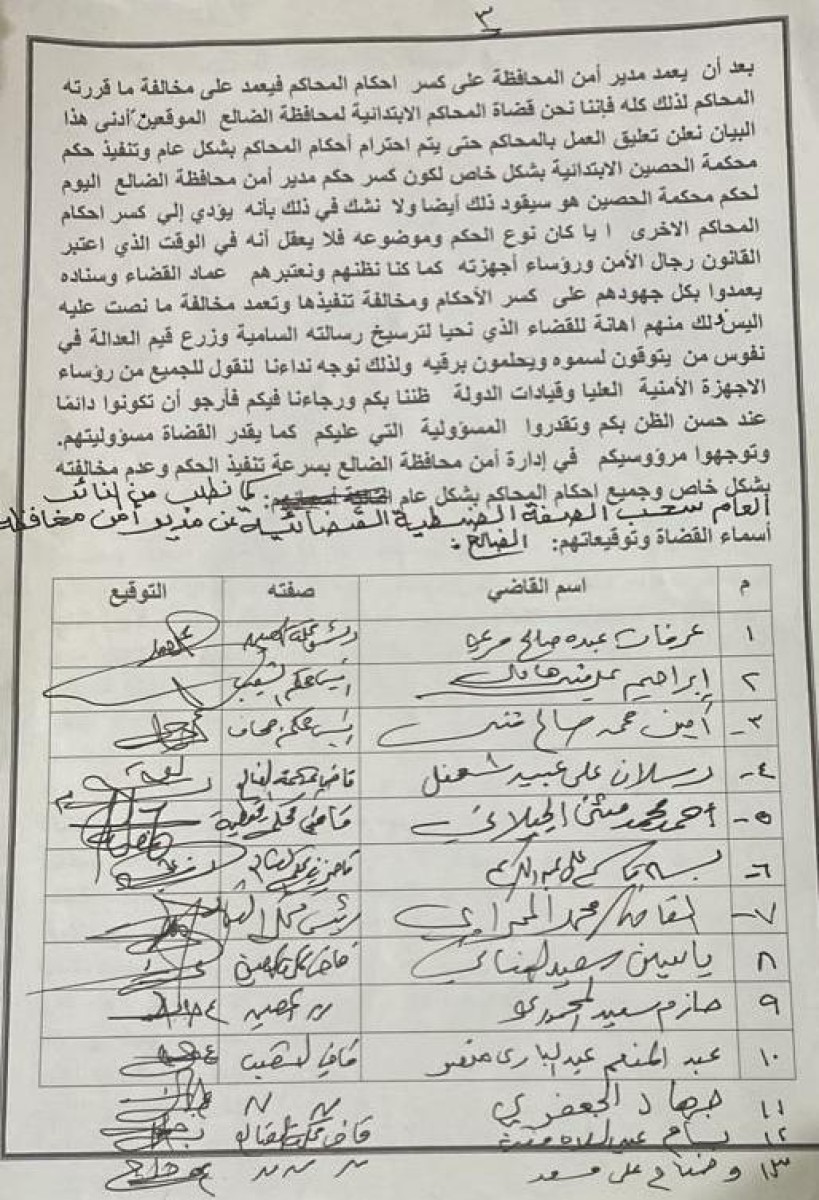 ٣
بعد أن يعمد مدير أمن المحافظة على كسر احكام المحاكم فيعمد على مخالفة ما قررته
المحاكم لذلك كله فإننا نحن قضاة المحاكم الابتدائية لمحافظة الضالع الموقعين أدنى هذا
البيان نعلن تعليق العمل بالمحاكم حتى يتم احترام أحكام المحاكم بشكل عام وتنفيذ حكم
محكمة الحصين الابتدائية بشكل خاص لكون كسر حكم مدير أمن محافظة الضالع اليوم
لحكم محكمة الحصين هو سيقود ذلك أيضا ولا نشك في ذلك بأنه يؤدي إلي كسر احكام
المحاكم الاخرى ا يا كان نوع الحكم وموضوعه فلا يعقل أنه في الوقت الذي اعتبر
القانون رجال الأمن ورؤساء أجهزته كما كنا نظنهم ونعتبرهم عماد القضاء وسناده
يعمدوا بكل جهودهم على كسر الأحكام ومخالفة تنفيذها وتعمد مخالفة ما نصت عليه
اليس ذلك منهم اهانة للقضاء الذي نحيا لترسيخ رسالته السامية وزرع قيم العدالة في
نفوس من يتوقون لسموه ويحلمون برقيه ولذلك نوجه نداءنا لنقول للجميع من رؤساء
الاجهزة الأمنية العليا وقيادات الدولة ظننا بكم ورجاءنا فيكم فأرجو أن تكونوا دائمًا
عند حسن الظن بكم وتقدروا المسؤولية التي عليكم كما يقدر القضاة مسؤوليتهم.
وتوجهوا مرؤوسيكم في إدارة أمن محافظة الضالع بسرعة تنفيذ الحكم وعدم مخالفته
بشكل خاص وجميع احكام المحاكم بشكل عام كما نطلب من النائب
العام سحب الصفة الضبطية القضائية عن مدير أمن محافظة
أسماء القضاة وتوقيعاتهم: الضالع:
م اسم القاضي صفته التوقيع
١ عرفات عبده صالح
٢ إبراهيم
٣- أمين محمد صالح
٤- رسلان علي عبيد
٥- أحمد محمد مثنى الجيلاني
٦-
٧- القاضي/ محمد رئيس
٨ ياسين سعيد
٩ حازم سعيد
١٠ عبد المنعم عبد الباري قاضي
١١ جهاد الجعفري
١٢ بسام عبد السلام
١٣ وضاح علي مسعد